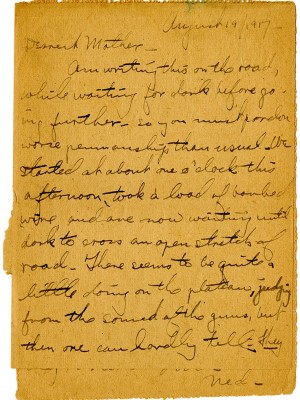 August 19/1917
Dearest Mother —
Am writing this on the road,
while waiting for dark before go-
ing further — so you must pardon
worse penmanship than usual. We
started at about one o'clock this
afternoon, took a load of barbed
wire and are now waiting until
dark to cross an open stretch of
road — There seems to be quite a
little doing on the plateau, judging
from the sound of the guns, but
then one can hardly tell — they
Ned —